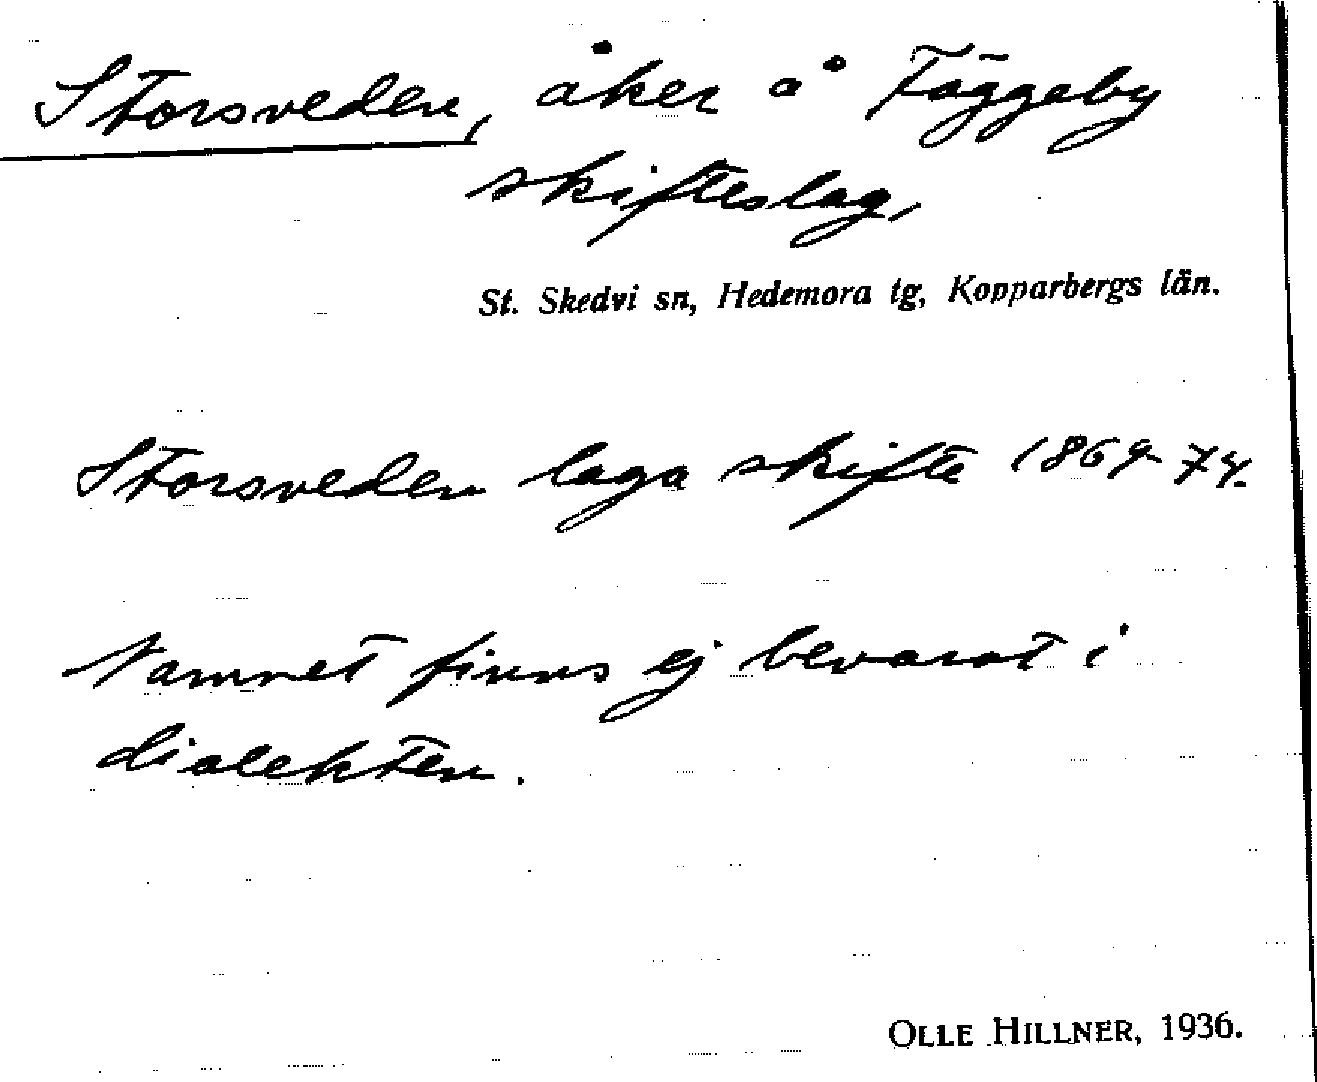 Storsveden, åker å Fäggeby
skifteslag,
St. Skedvi sn, Hedemora tg, Kopparbergs län.
Storsveden laga skifte 1869-74.
Namnet finns ej bevarat i
dialekten.
OLLE HILLNER, 1936.